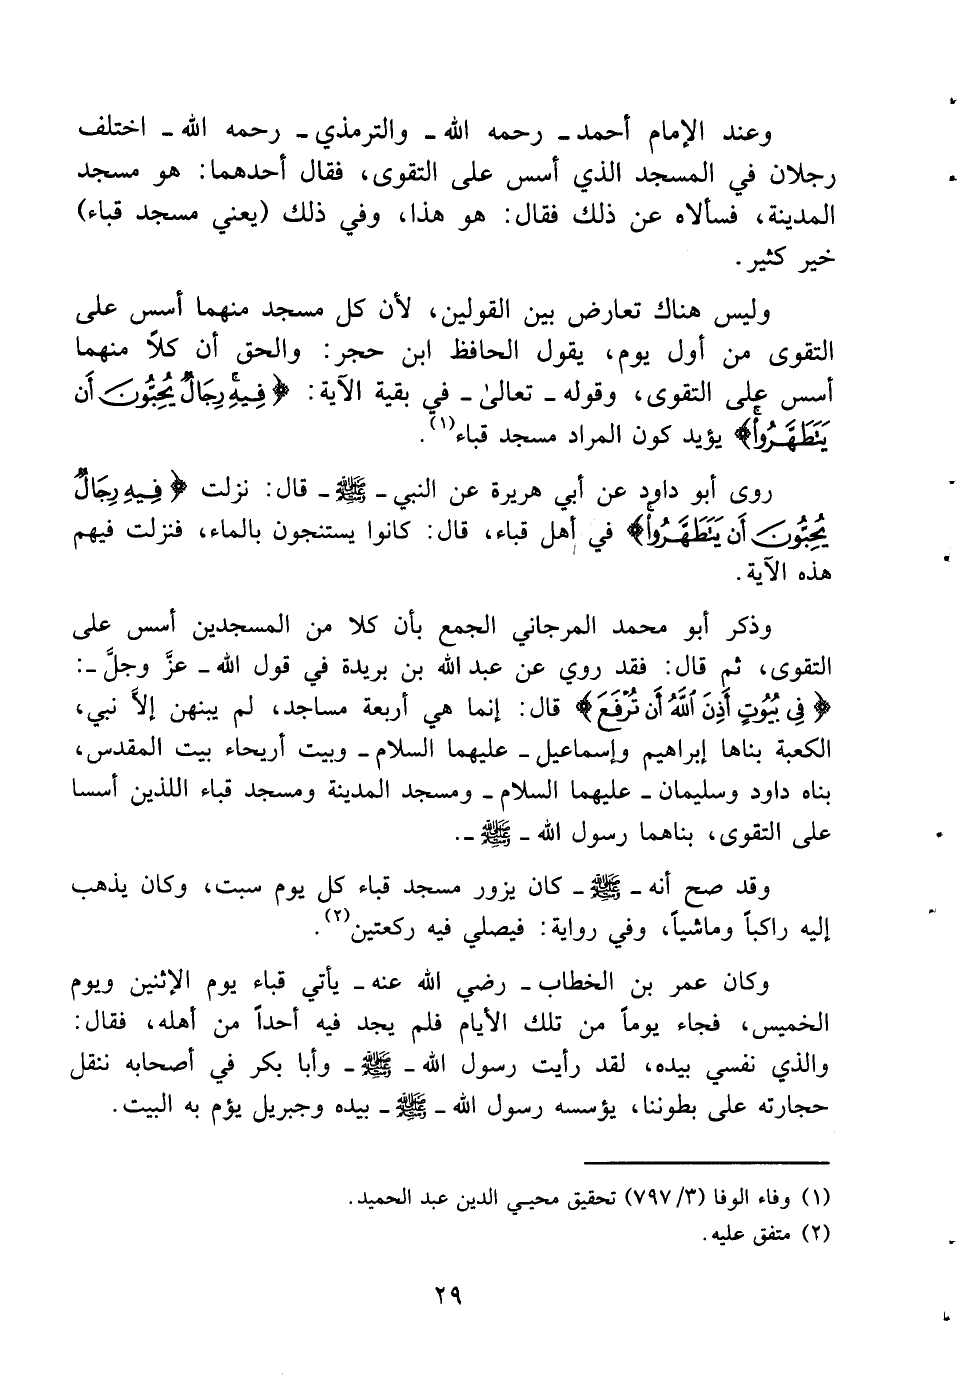 وعند الإمام أحمد ـ رحمه الله ـ والترمذي ـ رحمه الله ـ اختلف
رجلان في المسجد الذي أسس على التقوى، فقال أحدهما: هو مسجد
المدينة، فسألاه عن ذلك فقال: هو هذا، وفي ذلك (يعني مسجد قباء)
خير كثير.
وليس هناك تعارض بين القولين، لأن كل مسجد منهما أسس على
التقوى من أول يوم، يقول الحافظ ابن حجر: والحق أن كلاً منهما
أسس على التقوى، وقوله ـ تعالىٰ ـ في بقية الآية: ﴿فِيهِ رِجَالٌ يُحِبُّونَ أَن
يَتَطَهَّرُوا﴾ يؤيد كون المراد مسجد قباء(١).
روى أبو داود عن أبي هريرة عن النبي ـ ﷺ ـ قال: نزلت ﴿فِيهِ رِجَالٌ
يُحِبُّونَ أَن يَتَطَهَّرُوا﴾ في أهل قباء، قال: كانوا يستنجون بالماء، فنزلت فيهم
هذه الآية.
وذكر أبو محمد المرجاني الجمع بأن كلا من المسجدين أسس على
التقوى، ثم قال: فقد روي عن عبد الله بن بريدة في قول الله ـ عزَّ وجلَّ ـ:
﴿فِي بُيُوتٍ أَذِنَ اللَّهُ أَن تُرْفَعَ﴾ قال: إنما هي أربعة مساجد، لم يبنهن إلاَّ نبي،
الكعبة بناها إبراهيم وإسماعيل ـ عليهما السلام ـ وبيت أريحاء بيت المقدس،
بناه داود وسليمان ـ عليهما السلام ـ ومسجد المدينة ومسجد قباء اللذين أسسا
على التقوى، بناهما رسول الله ـ ﷺ ـ.
وقد صح أنه ـ ﷺ ـ كان يزور مسجد قباء كل يوم سبت، وكان يذهب
إليه راكباً وماشياً، وفي رواية: فيصلي فيه ركعتين(٢).
وكان عمر بن الخطاب ـ رضي الله عنه ـ يأتي قباء يوم الإثنين ويوم
الخميس، فجاء يوماً من تلك الأيام فلم يجد فيه أحداً من أهله، فقال:
والذي نفسي بيده، لقد رأيت رسول الله ـ ﷺ ـ وأبا بكر في أصحابه ننقل
حجارته على بطوننا، يؤسسه رسول الله ـ ﷺ ـ بيده وجبريل يؤم به البيت.
(١) وفاء الوفا (٣/ ٧٩٧) تحقيق محيي الدين عبد الحميد.
(٢) متفق عليه.
٢٩